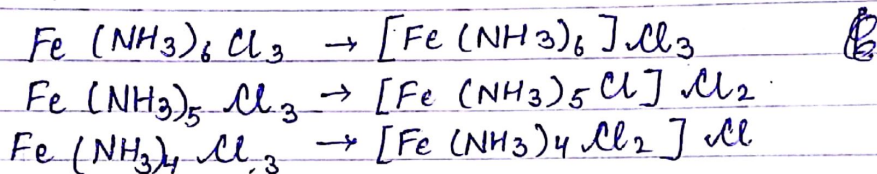 Fe (NH3)6 Cl3 → [Fe (NH3)6] Cl3
Fe (NH3)5 Cl3 → [Fe (NH3)5 Cl] Cl2
Fe (NH3)4 Cl3 → [Fe (NH3)4 Cl2] Cl